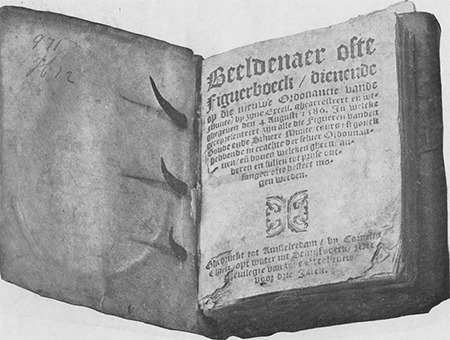 971
H 12
Beeldenaer ofte
Figuerboeck / dienende
op die nieuwe Ordonancie vander
Munte / by zyne Excell. ghearresteert en wt-
ghegeven den 4 Augusti 1586. In welcke
gerepresenteert zijn alle die Figueren vanden
Goude ende Silvere Munte
hebbende in crachte der selver Ordonnan-
tien / en boven welcken gheen an-
deren en sullen tot prijse ont-
fangen ofte besteet mo-
gen werden.
Ghedruckt tot Amstelredam / by Cornelis
Claesz. opt water int Schrijfboeck / Met
Privilegie van zyne Excellencie
voor drie Jaren.